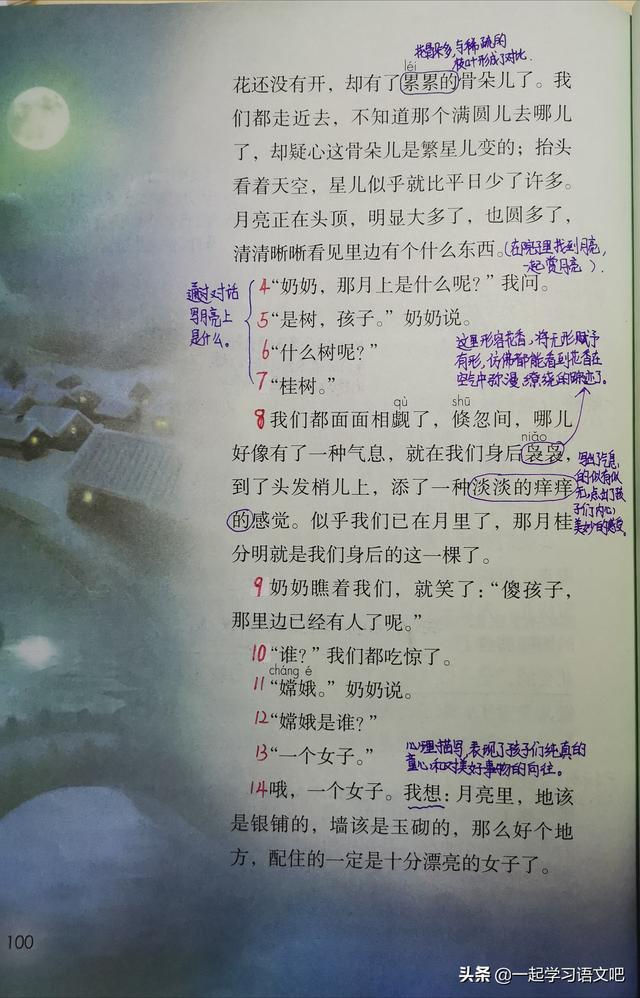 花骨朵多,与稀疏的
枝叶形成了对比.
léi
花还没有开，却有了累累的骨朵儿了。我
们都走近去，不知道那个满圆儿去哪儿
了，却疑心这骨朵儿是繁星儿变的；抬头
看着天空，星儿似乎就比平日少了许多。
月亮正在头顶，明显大多了，也圆多了，
清清晰晰看见里边有个什么东西。
(在院里找到月亮,
一起赏月亮).
通过对话
写月亮上
是什么。
4“奶奶，那月上是什么呢？”我问。
5“是树，孩子。”奶奶说。
6“什么树呢？”
7“桂树。”
这里形容花香,将无形赋予
有形,仿佛都能看到花香在
空气中弥漫缭绕的踪迹了。
qù shū
8我们都面面相觑了，倏忽间，哪儿
好像有了一种气息，就在我们身后袅袅，
niǎo
到了头发梢儿上，添了一种淡淡的痒痒
的感觉。似乎我们已在月里了，那月桂
分明就是我们身后的这一棵了。
写出了气息
的似有似
无,点出了孩
子们内心
美妙的感受。
9奶奶瞧着我们，就笑了：“傻孩子，
那里边已经有人了呢。”
10“谁？”我们都吃惊了。
cháng é
11“嫦娥。”奶奶说。
12“嫦娥是谁？”
13“一个女子。”
心理描写,表现了孩子们纯真的
童心和对美好事物的向往。
14哦，一个女子。我想：月亮里，地该
是银铺的，墙该是玉砌的，那么好个地
方，配住的一定是十分漂亮的女子了。
100
头条 @一起学习语文吧